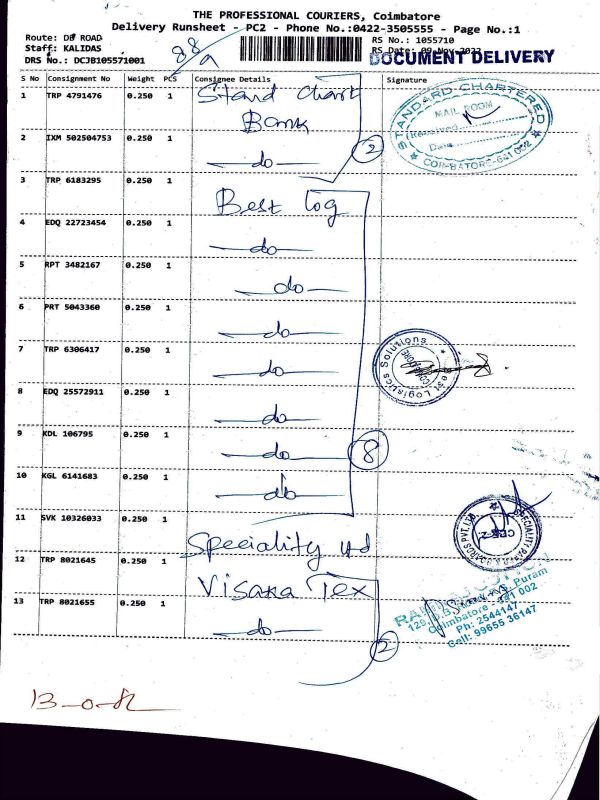 THE PROFESSIONAL COURIERS, Coimbatore
Delivery Runsheet - PC2 - Phone No.:0422-3505555 - Page No.:1
Route: DB ROAD
RS No.: 1055710
Staff: KALIDAS
RS Date: 09 Nov 2022
DRS No.: DCJB105571001
88
DOCUMENT DELIVERY
S No Consignment No Weight PCS Consignee Details Signature
1 TRP 4791476 0.250 1 Stand Chart Bank
STANDARD CHARTERED
MAIL ROOM
Received
Date
COIMBATORE-641 002
2 IXM 502504753 0.250 1 do
2
3 TRP 6183295 0.250 1 Best Log
4 EDQ 22723454 0.250 1 do
5 RPT 3482167 0.250 1 do
6 PRT 5043360 0.250 1 do
7 TRP 6306417 0.250 1 do
Best Logistics Solutions
COIMBATORE
8 EDQ 25572911 0.250 1 do
9 KDL 106795 0.250 1 do
8
10 KGL 6141683 0.250 1 do
11 SVK 10326033 0.250 1 Speciality Ltd
12 TRP 8021645 0.250 1 Visaka Tex
13 TRP 8021655 0.250 1 do
2
Puram
Coimbatore - 641 002
Ph: 2544147
Cell: 99655 36147
13-0-